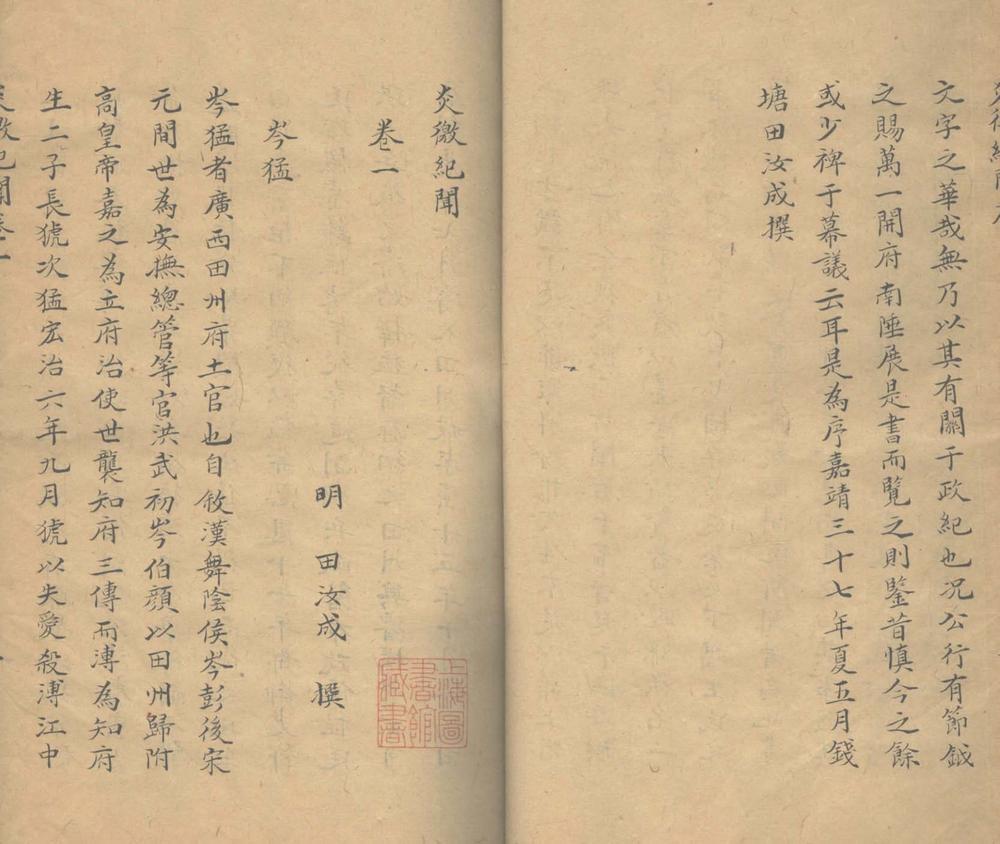 文字之華哉無乃以其有關于政紀也况公行有節鉞
之賜萬一開府南陲展是書而覽之則鑒昔慎今之餘
或少裨于幕議云耳是為序嘉靖三十七年夏五月錢
塘田汝成撰
炎徼紀聞
卷二
明 田汝成 撰
岑猛
岑猛者廣西田州府土官也自敘漢舞陰侯岑彭後宋
元間世為安撫總管等官洪武初岑伯顔以田州歸附
高皇帝嘉之為立府治使世襲知府三傳而溥為知府
生二子長猇次猛宏治六年九月猇以失愛殺溥江中
上海圖
書館
藏書